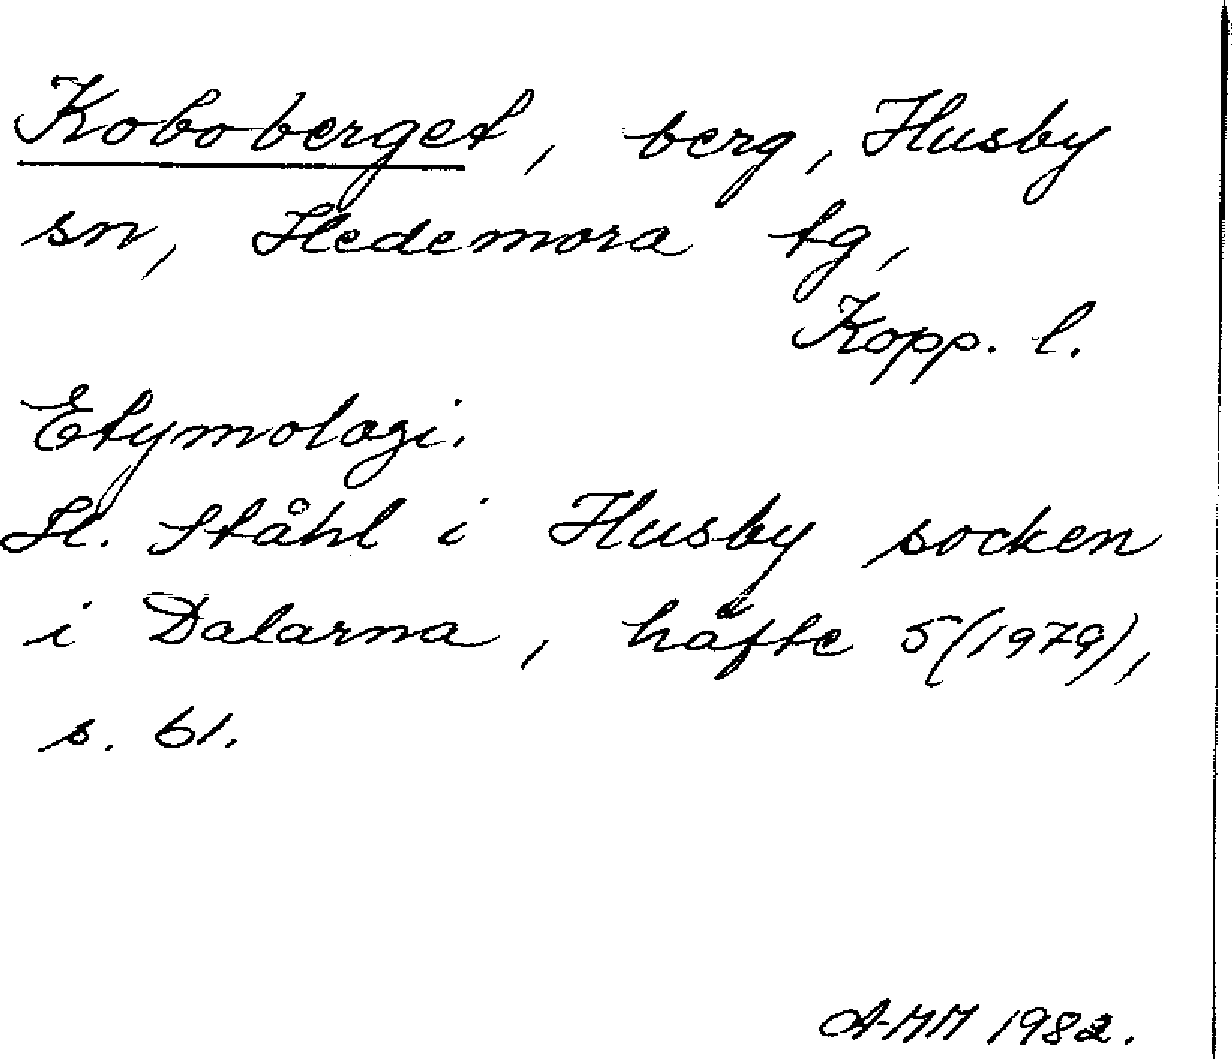 Koboberget, berg, Husby
sn, Hedemora tg,
Kopp. l.
Etymologi.
H. Ståhl i Husby socken
i Dalarna, häfte 5(1979),
s. 61.
A-MM 1982.